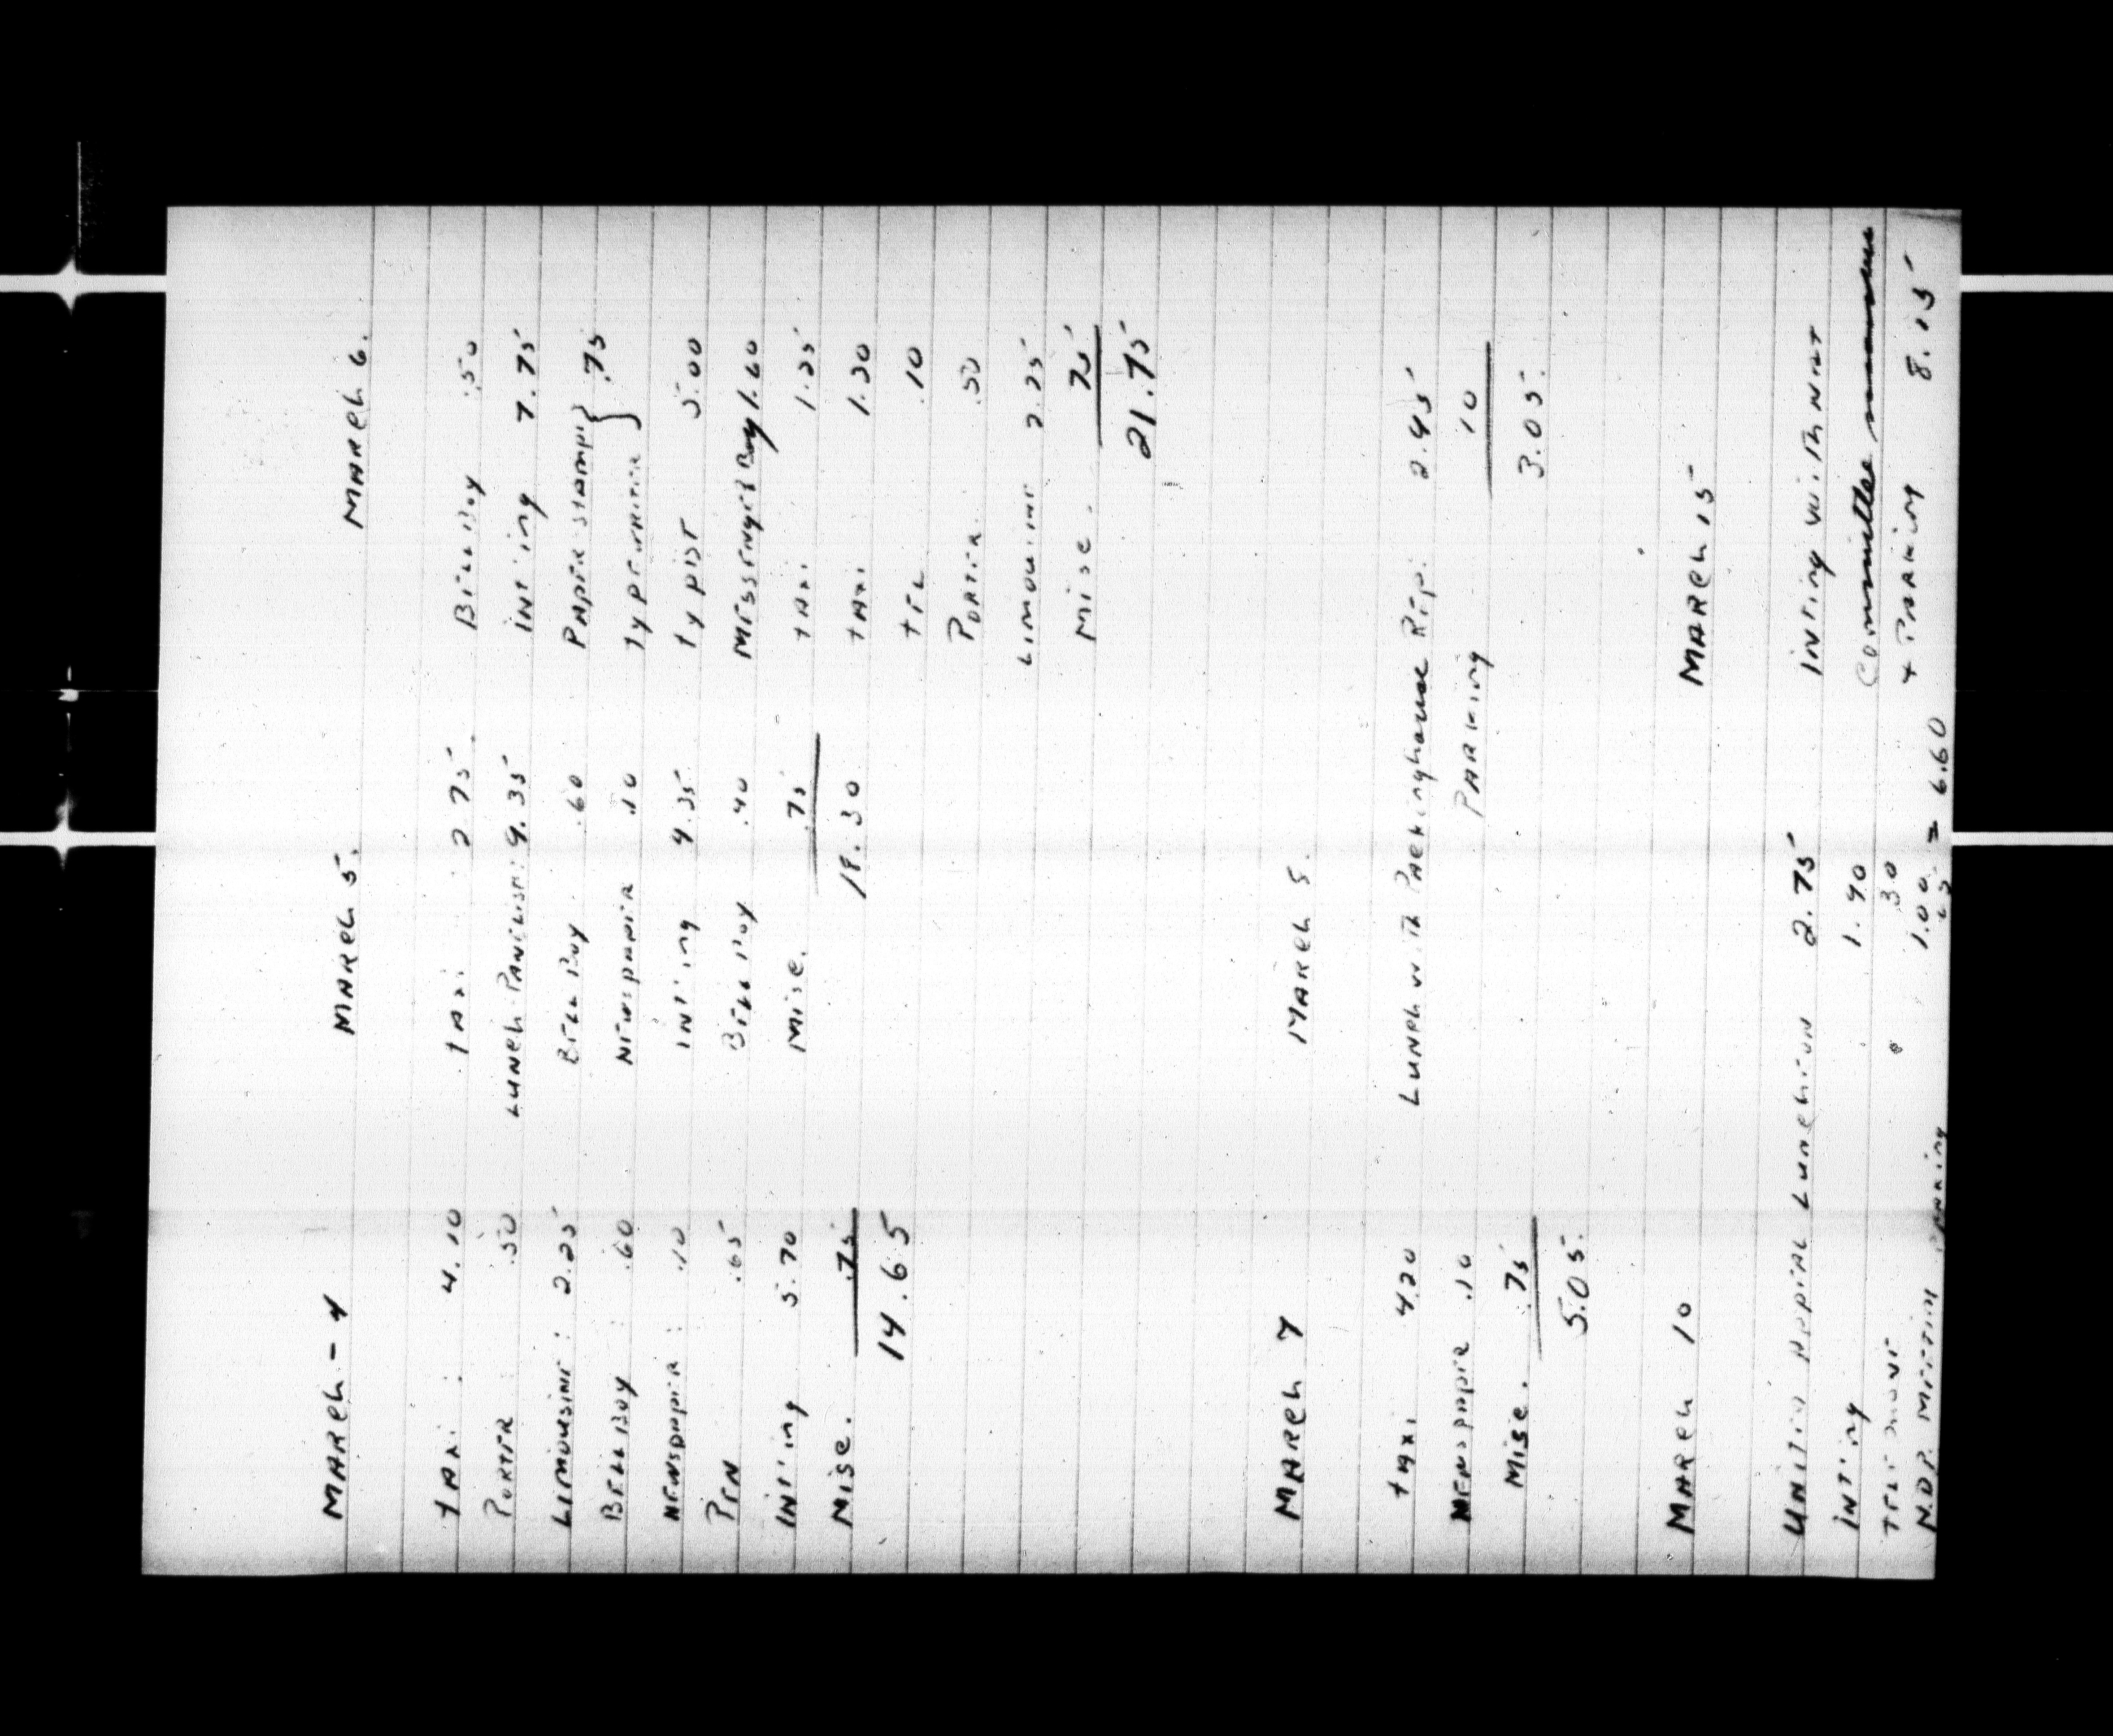 MARCH - 4
TAXI : 4.10
PORTER .50
LIMOUSINE : 2.25
BELL BOY .60
NEWSPAPER : .10
PEN .65
INT'ING 5.70
MISC. .75
14.65
MARCH 5
TAXI 2.75
LUNCH 9.35
BELL BOY .60
NEWSPAPER .10
INT'ING 4.35
BELL BOY .40
MISC. .75
18.30
MARCH 6.
BELL BOY .50
INT'ING 7.75
PAPER STAMPS } .75
TYPEWRITER
TYPIST 5.00
MESSENGER BOY 1.60
TAXI 1.25
TAXI 1.30
TEL .10
PORTER .50
LIMOUSINE 2.25
MISC. .75
21.75
MARCH 7
TAXI 4.20
NEWSPAPER .10
MISC. .75
5.05.
MARCH 8.
LUNCH WITH PACKINGHOUSE REP. 2.95
PARKING .10
3.05.
MARCH 10
UNITED APPEAL LUNCHEON 2.75
INT'ING 1.90
TELEPHONE .30
N.D.P. MEETING 1.00
PARKING = 6.60
MARCH 15
INT'ING WITH NAT
COMMITTEE
+ PARKING 8.15